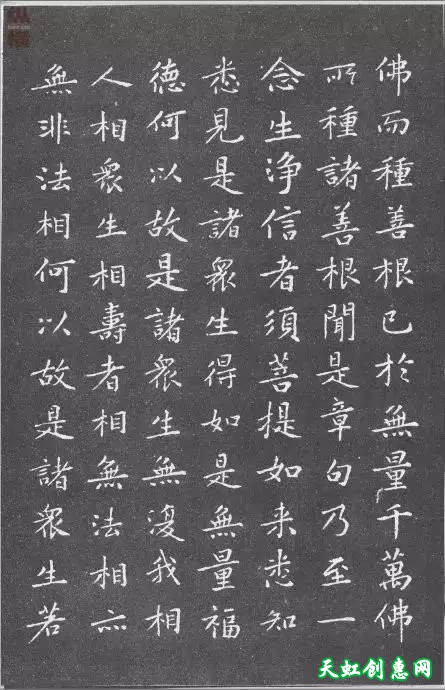 佛而種善根已於無量千萬佛
所種諸善根聞是章句乃至一
念生淨信者須菩提如来悉知
悉見是諸眾生得如是無量福
德何以故是諸眾生無復我相
人相眾生相壽者相無法相亦
無非法相何以故是諸眾生若
天虹创惠网